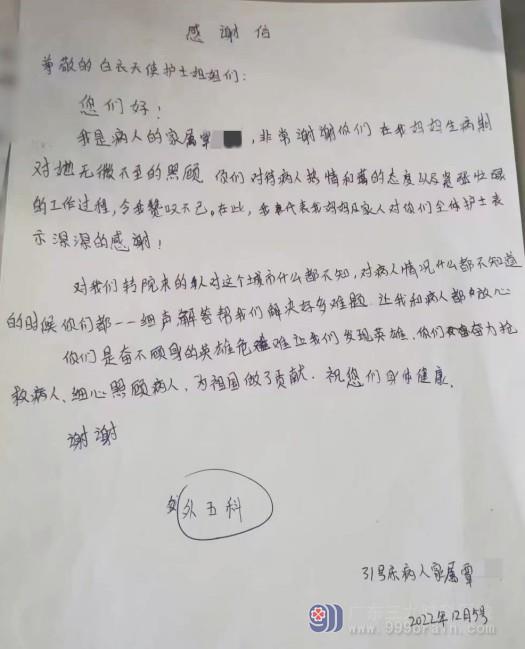 感谢伯
尊敬的白衣天使护士姐姐们:
您们好!
我是病人的家属覃 , 非常谢谢你们在我妈妈生病期
对她无微不至的照顾 你们对待病人热情和蔼的态度以及
的工作过程, 令我赞叹不已。在此, 我代表我妈妈及家人对你们全体护士表
示深深的感谢!
对我们转院来的人对这个城市什么都不知, 对病人情况什么都不知道
的时候你们都一一细声解答帮我们解决好多难题 让我和病人都放心
你们是奋不顾身的英雄危难让我们发现英雄, 你们奋力抢
救病人、细心照顾病人, 为祖国做了贡献. 祝您们身体健康.
谢谢
外五科
31号床病人家属覃
2022年12月5号
广东三九脑科医院
www.999brain.com